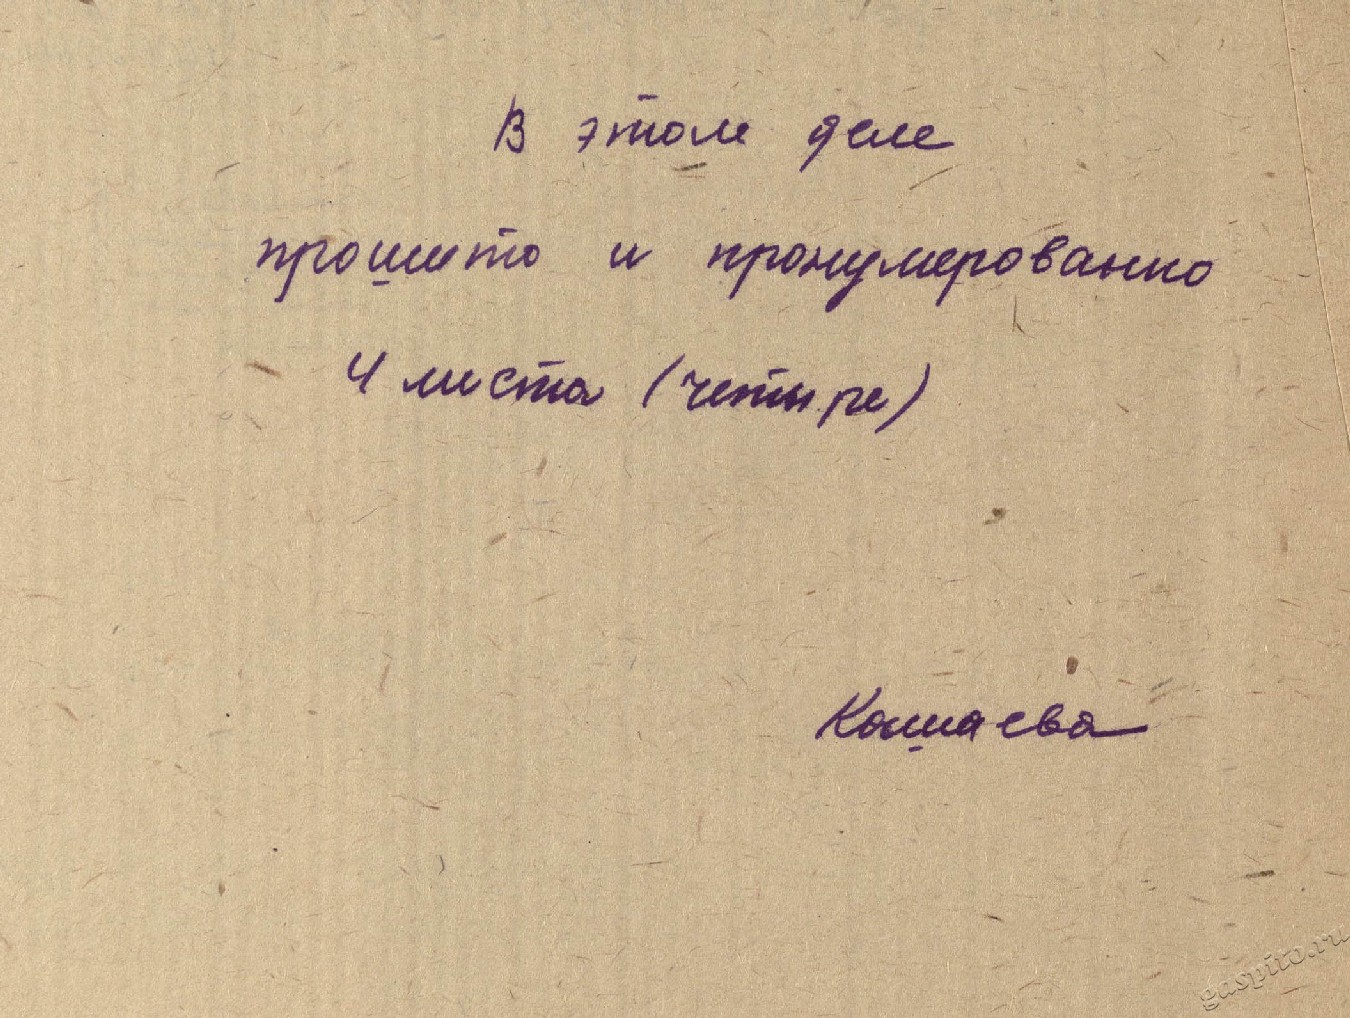 В этом деле
прошито и пронумерованно
4 листа (четыре)
Кошаева
gaspito.ru